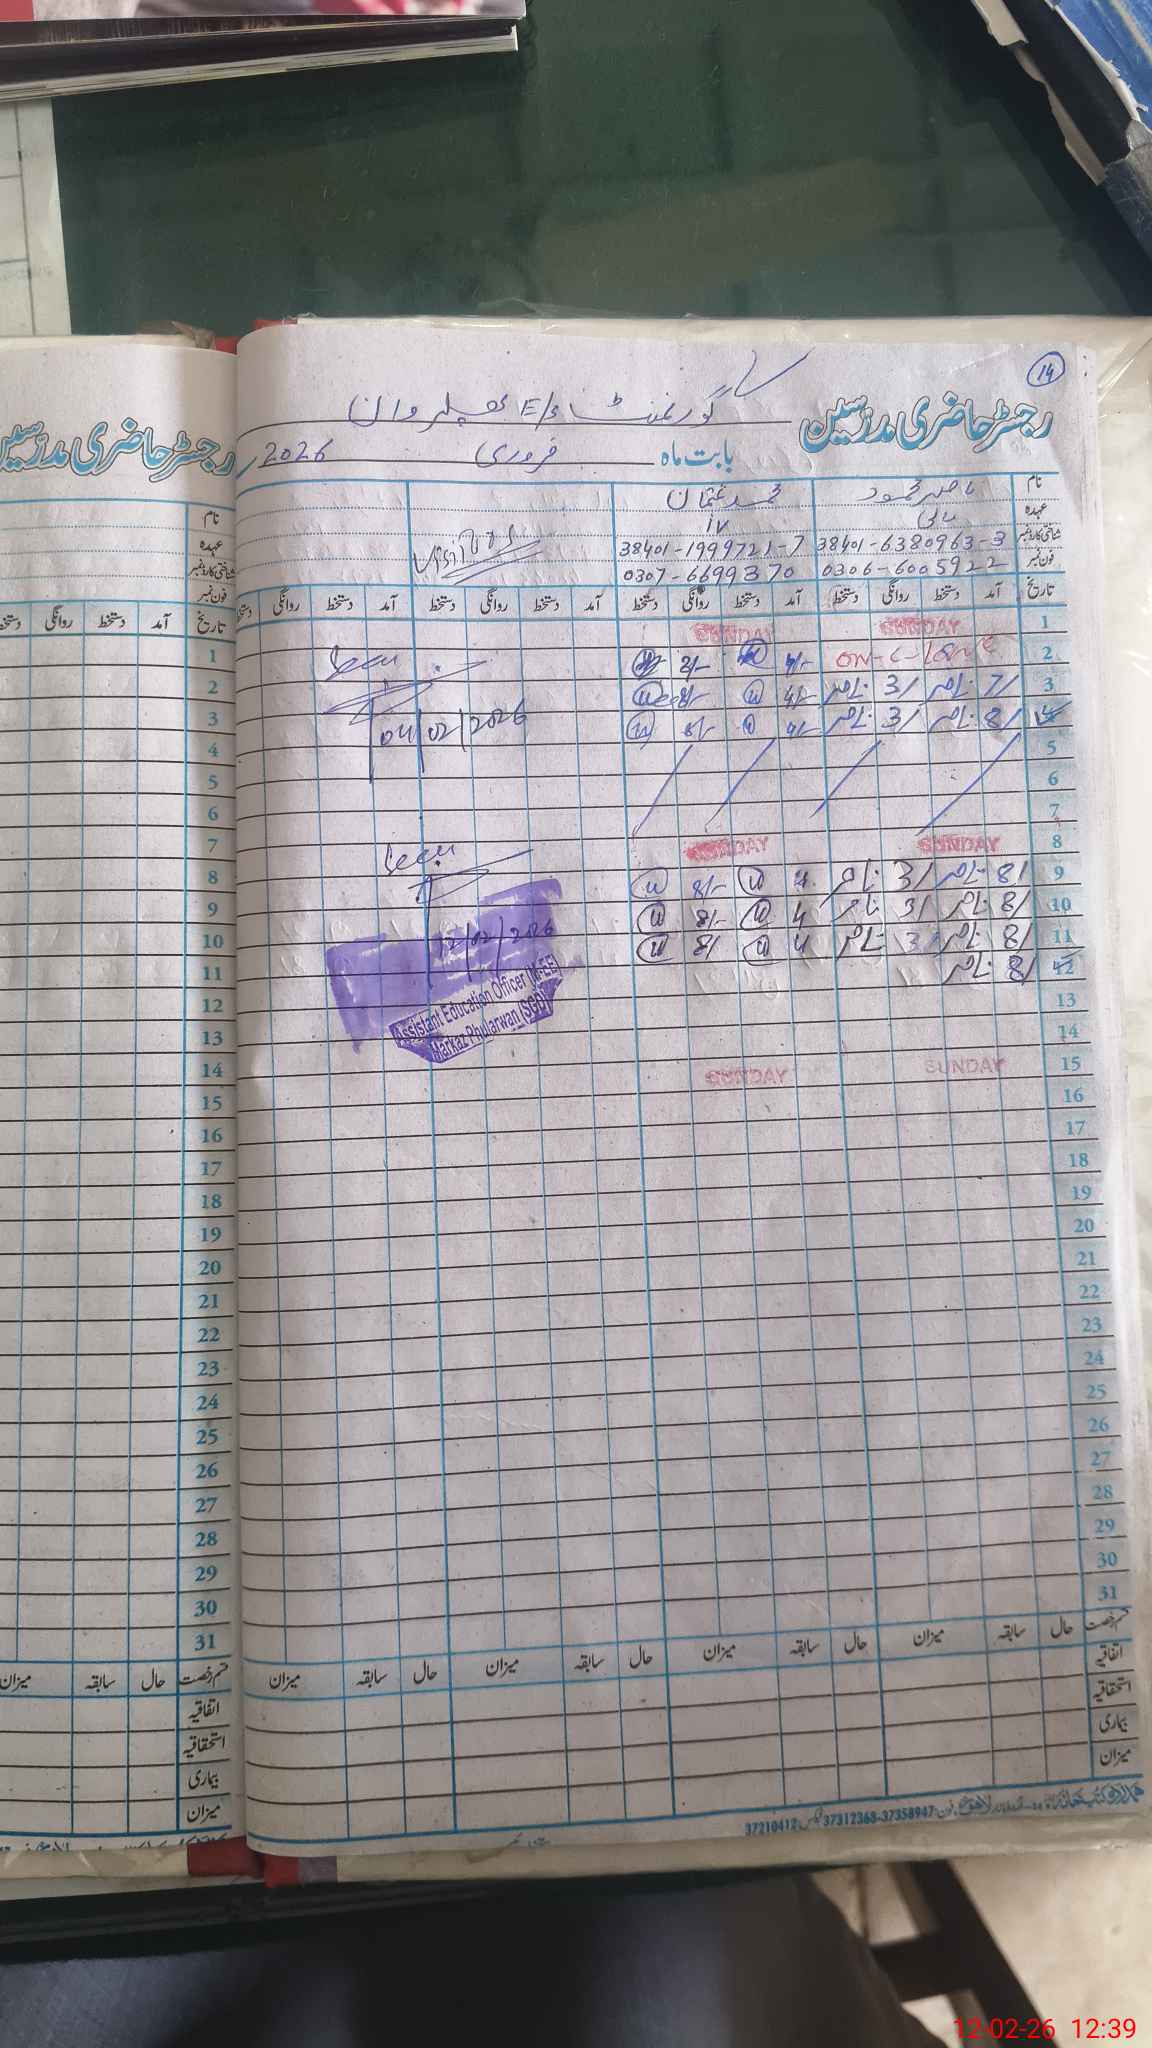 14
رجسٹر حاضری مدرسین گورنمنٹ E/S پھلروان
بابت ماہ فروری 2026
نام ناصر محمود محمد عثمان
عہدہ مالی iv
شناختی کارڈ نمبر 38401-6380963-3 38401-1999721-7
فون نمبر 0306-6005922 0307-6699370
تاریخ آمد دستخط روانگی دستخط آمد دستخط روانگی دستخط آمد دستخط روانگی دستخط آمد دستخط روانگی دستخط
1 SUNDAY SUNDAY
2 ON-C-Leave 8/-
3 7/ 3/ 4/- 8/-
4 8/ 3/ 8/-
04/02/2026
5
6
7
8 SUNDAY SUNDAY
9 8/ 3/ 8/-
10 8/ 3/ 8/-
11 8/ 3/ 8/
12 8/
12/02/2026
Assistant Education Officer (M-EE)
Markaz Phularwan (SGD)
13
14
15 SUNDAY SUNDAY
16
17
18
19
20
21
22
23
24
25
26
27
28
29
30
31
قسم رخصت حال سابقہ میزان حال سابقہ میزان حال سابقہ میزان حال سابقہ میزان
اتفاقیہ
استحقاقیہ
بیماری
میزان
37312368-37358947 37210412
رجسٹر حاضری مدرسین
نام
عہدہ
شناختی کارڈ نمبر
فون نمبر
تاریخ آمد دستخط روانگی
1
2
3
4
5
6
7
8
9
10
11
12
13
14
15
16
17
18
19
20
21
22
23
24
25
26
27
28
29
30
31
قسم رخصت حال سابقہ میزان
اتفاقیہ
استحقاقیہ
بیماری
میزان
12-02-26 12:39